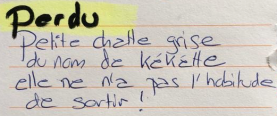 Perdu
Petite chatte grise
du nom de kékette
elle ne n'a pas l'habitude
de sortir !